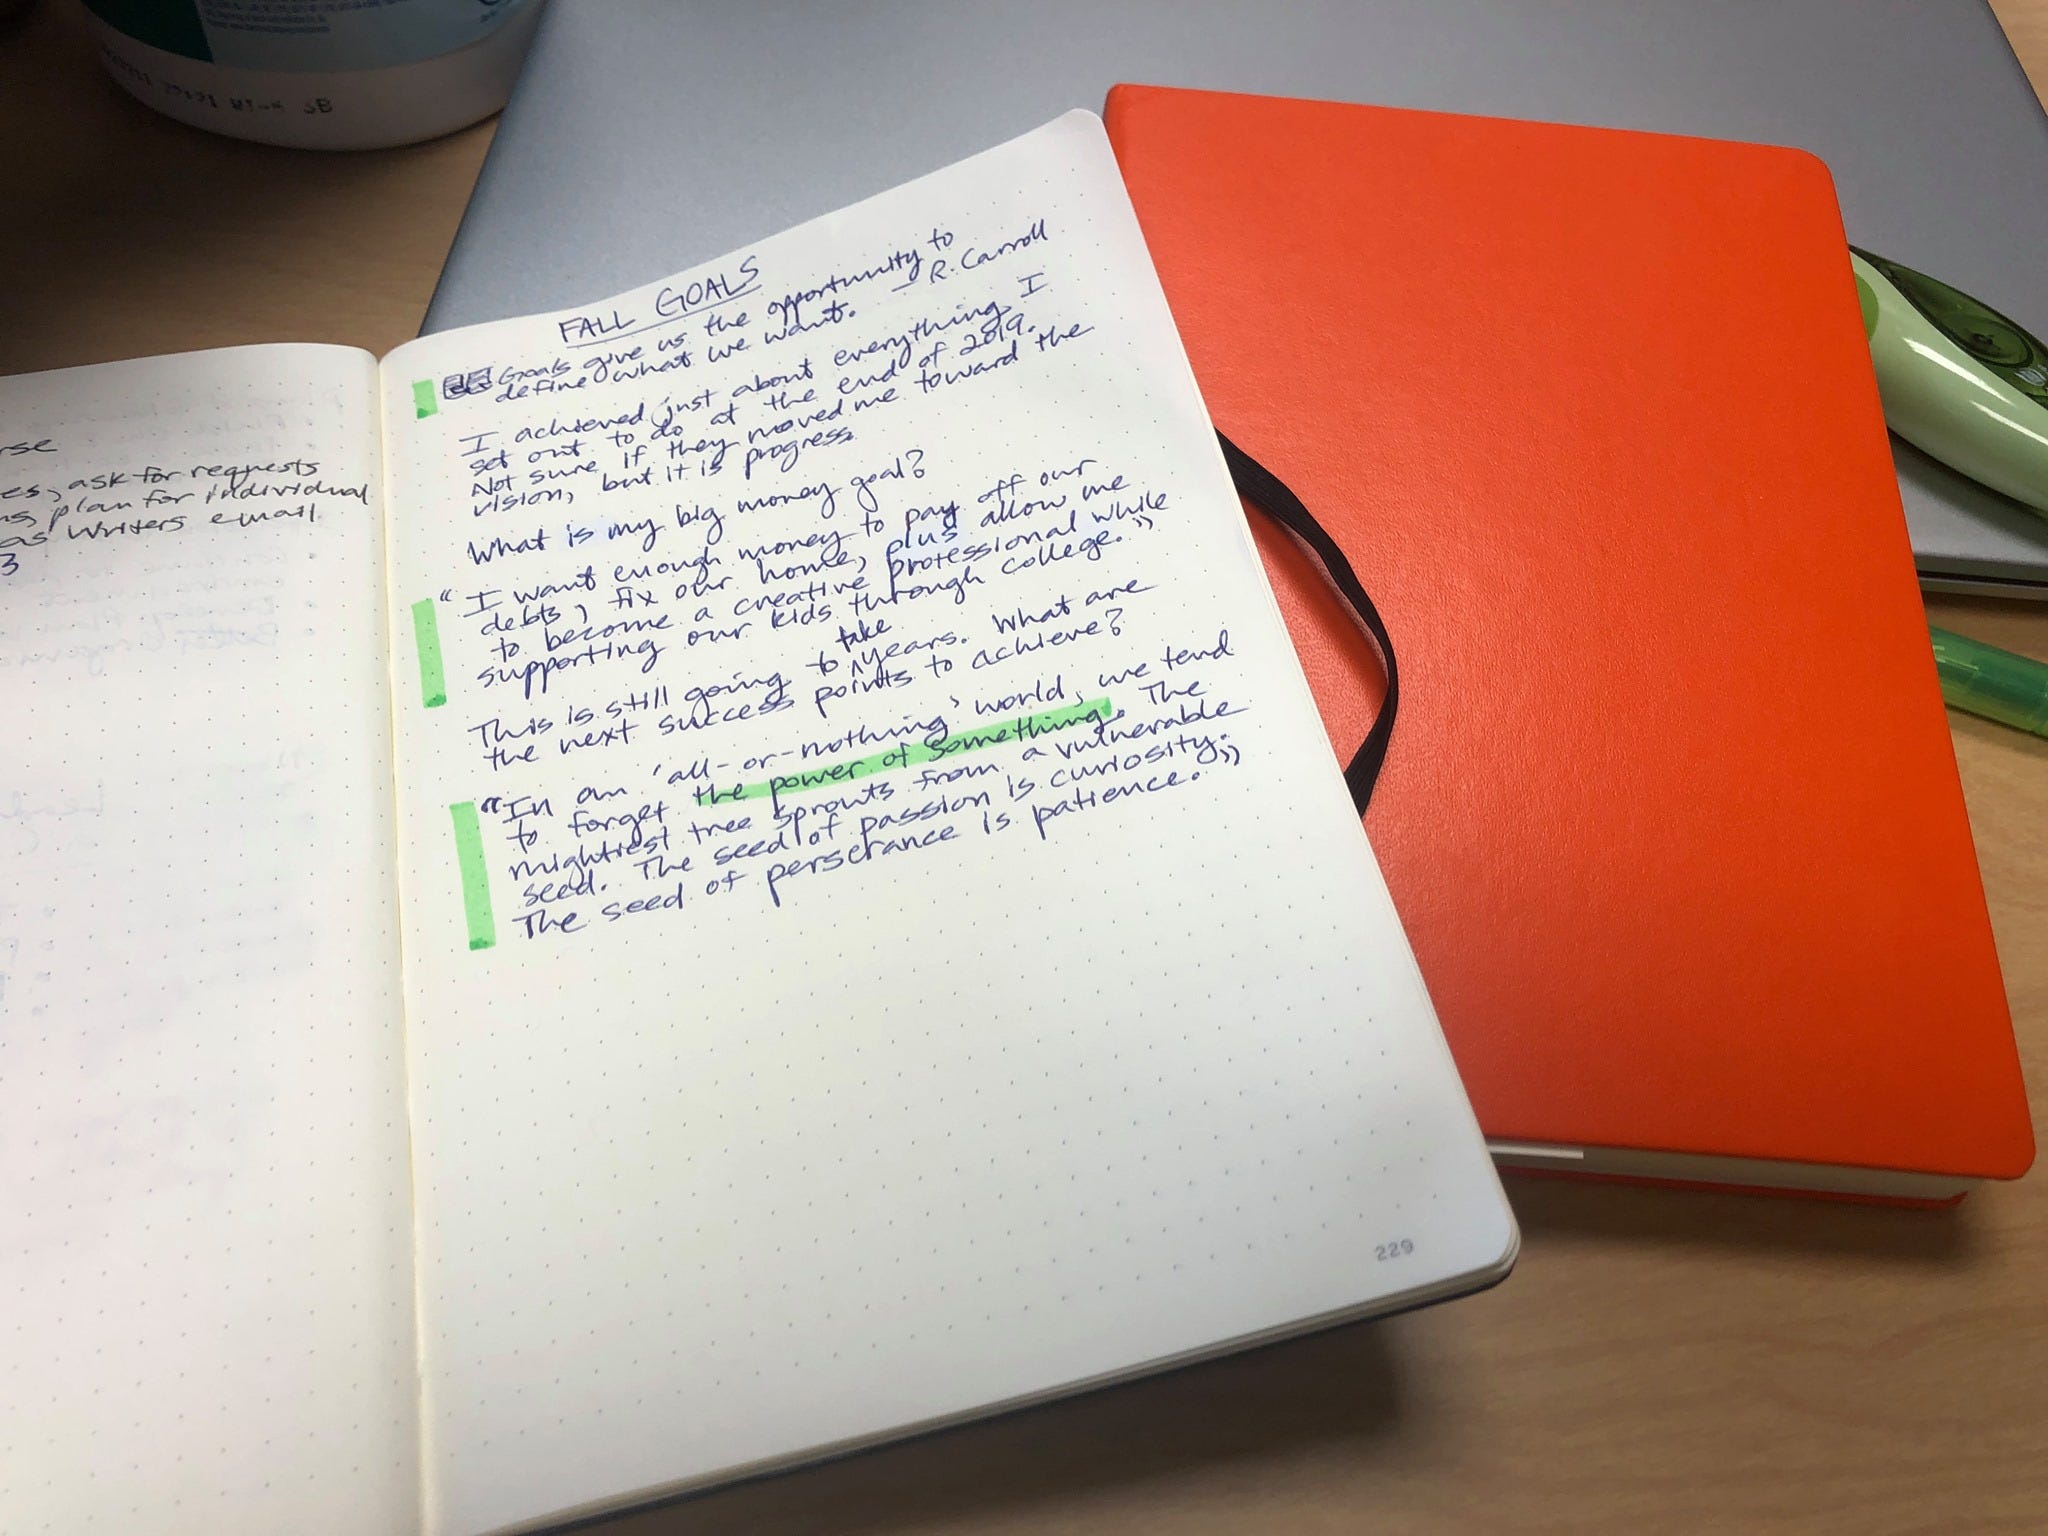 rse
es, ask for requests
plan for individual
as writers email
3
FALL GOALS
Goals give us the opportunity to
define what we want. — R. Carroll
I achieved just about everything I
set out to do at the end of 2019.
Not sure if they moved me toward the
vision, but it is progress.
What is my big money goal?
"I want enough money to pay off our
debts, fix our home, plus allow me
to become a creative professional while
supporting our kids through college."
This is still going to take years. What are
the next success points to achieve?
"In an 'all-or-nothing' world, we tend
to forget the power of something. The
mightiest tree sprouts from a vulnerable
seed. The seed of passion is curiosity.
The seed of perserance is patience."
229